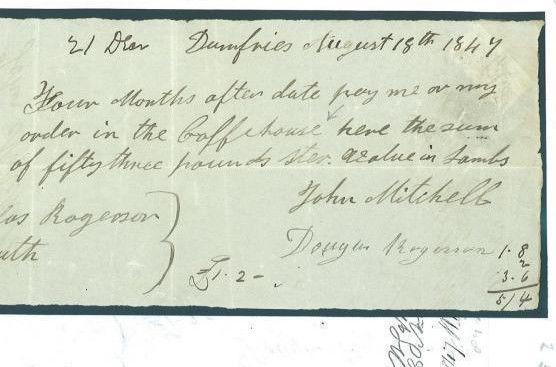 21 Decr Dumfries August 18th 1847
Four Months after date pay me or my
order in the Coffe house here the sum
of fifty three pounds Ster. Value in Lambs
John Mitchell
las Rogerson
Douglas Rogerson 1.8
uth
2
£1.2-
3.6
5/4